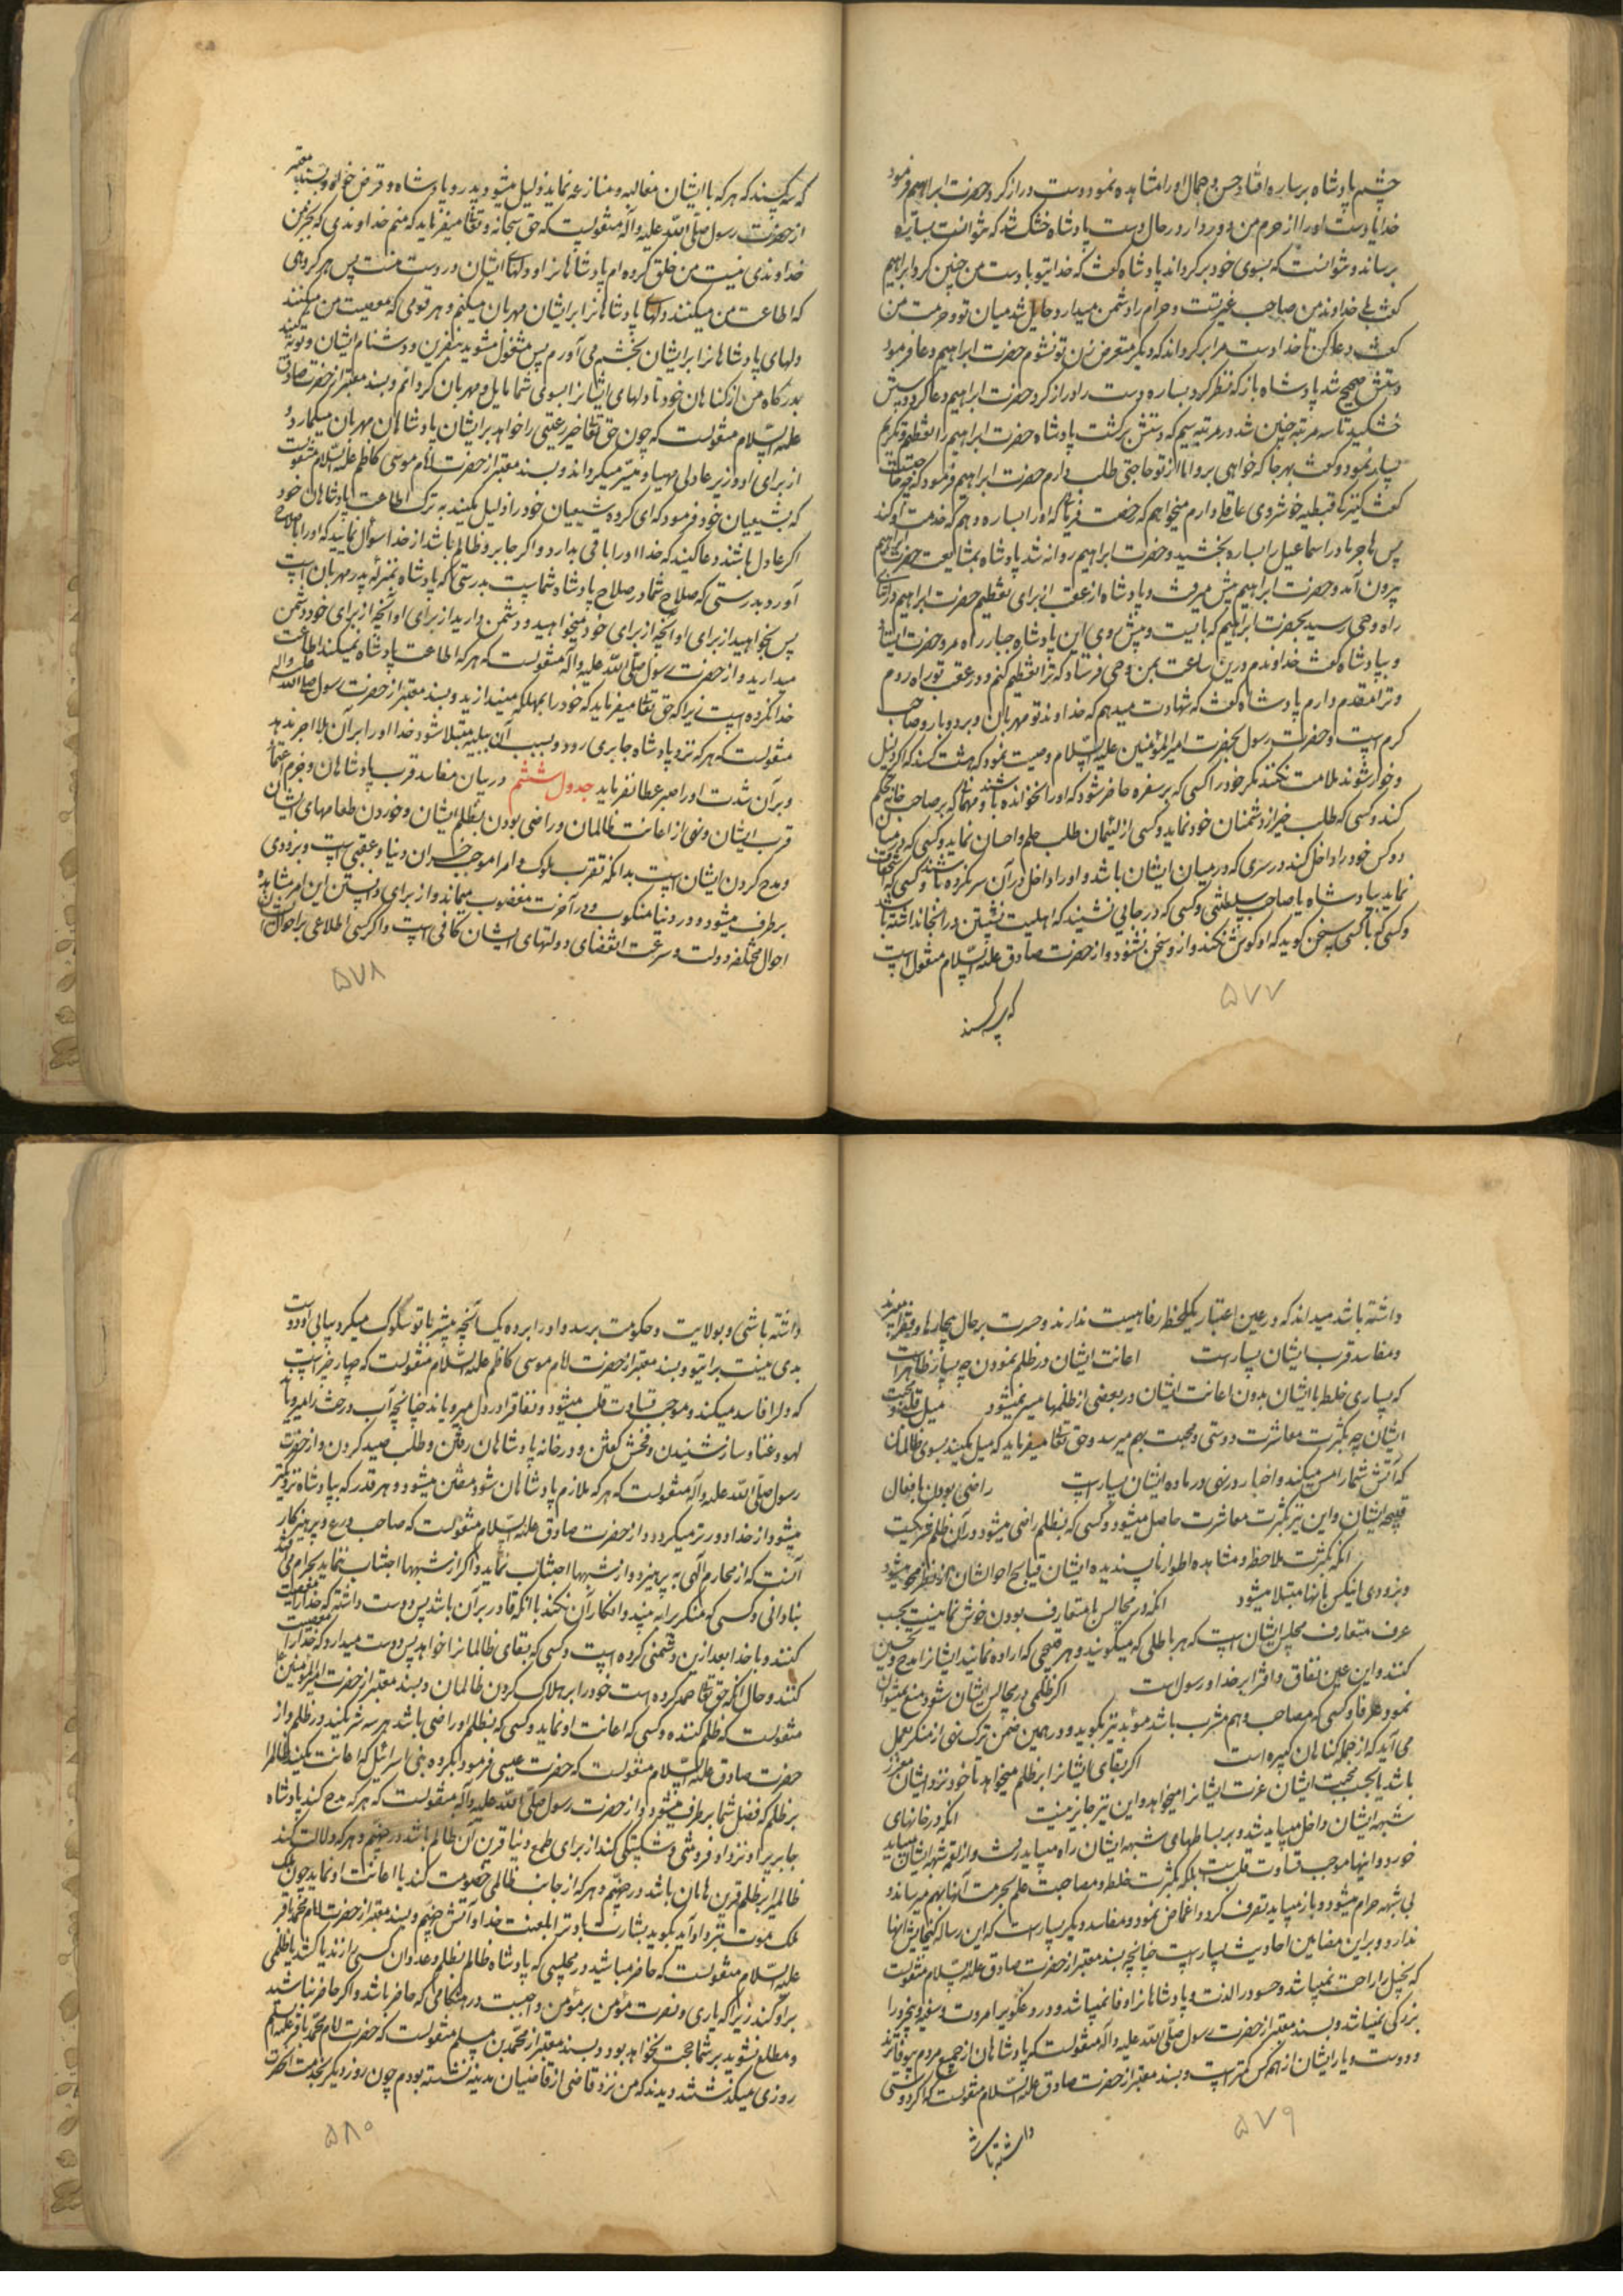 چشم پادشاه بر ساره افتاد و حسن و جمال او را مشاهده نمود دست دراز کرد حضرت ابراهیم فرمود
خدایا دست او را از حرم من دور دار در حال دست پادشاه خشک شد که نتوانست بساره
برساند و نتوانست که بسوی خود برگرداند پادشاه گفت که خدای تو با دست من چنین کرد ابراهیم
گفت بلی خداوند من صاحب غیرتست و حرام را دشمن میدارد و حایل شد میان تو و حرمت من
گفت دعا کن تا خدا دست مرا برگرداند که دیگر متعرض زن تو نشوم حضرت ابراهیم دعا فرمود
دستش صحیح شد پادشاه باز که نظر کرد بساره دست را دراز کرد حضرت ابراهیم دعا کرد و دستش
خشکید تا سه مرتبه چنین شد در مرتبه سیم که دستش برگشت پادشاه حضرت ابراهیم را تعظیم و تکریم
بسیار نمود و گفت بهر جا که خواهی برو اما از تو حاجتی طلب دارم حضرت ابراهیم فرمود که چه حاجتست
گفت کنیزک قبطیه خوشروی عاقلی دارم میخواهم که رخصت فرمائی که او را بساره دهم که خدمت او کند
پس هاجر مادر اسماعیل را بساره بخشید و حضرت ابراهیم روانه شد پادشاه بمشایعت حضرت ابراهیم
بیرون آمد و حضرت ابراهیم پیش میرفت و پادشاه از عقب او برای تعظیم حضرت ابراهیم در اثنای
راه وحی رسید بحضرت ابراهیم که بایست و پیش روی این پادشاه جبار راه مرو حضرت ایستاد
و بپادشاه گفت خداوندم درین ساعت بمن وحی فرستاد که ترا تعظیم کنم و در عقب تو راه روم
و ترا مقدم دارم پادشاه گفت که شهادت میدهم که خداوند تو مهربان و بردبار و صاحب
کرم است و حضرت رسول بحضرت امیرالمؤمنین علیه السلام وصیت نمود که هشت کسند که اگر ذلیل
و خوار شوند ملامت نکنند مگر خود را کسی که بر سفره حاضر شود که او را نخوانده باشند و مهمانی که بر صاحب خانه تحکم
کند و کسی که طلب خیر از دشمنان خود نماید و کسی از لئیمان طلب حلم و احسان نماید و کسی که در میان
دو کس خود را داخل کند در سری که در میان ایشان باشد و او را داخل در آن سر نکرده باشند و کسی که استخفاف
نماید بپادشاه یا صاحب سلطنتی و کسی که در جایی نشیند که اهلیت نشستن در آنجا نداشته باشد
و کسی که با کسی سخن گوید که او گوش نکند و از او سخن نشنود و از حضرت صادق علیه السلام منقول است
که سه کسند
۵۷۷
که سه کسند که هر که با ایشان مغالبه و منازعه نماید ذلیل میشود پدر و پادشاه و قرض خواه و بسند معتبر
از حضرت رسول صلی الله علیه و آله منقولست که حق سبحانه و تعالی میفرماید که منم خداوندی که بجز من
خداوندی نیست من خلق کرده‌ام پادشاهانرا و دلهای ایشان در دست منست پس هر گروهی
که اطاعت من میکنند دلهای پادشاهانرا بر ایشان مهربان میکنم و هر قومی که معصیت من میکنند
دلهای پادشاهانرا بر ایشان بخشم می‌آورم پس مشغول مشوید بنفرین و دشنام ایشان و توبه کنید
بدرگاه من از گناهان خود تا دلهای ایشانرا بسوی شما مایل و مهربان گردانم و بسند معتبر از حضرت صادق
علیه السلام منقولست که چون حق تعالی خیر رعیتی را خواهد بر ایشان پادشاهان مهربان میگمارد و
از برای او وزیر عادلی مهیا و میسر میگرداند و بسند معتبر از حضرت امام موسی کاظم علیه السلام منقولست
که بشیعیان خود فرمود که ای گروه شیعیان خود را ذلیل مکنید به ترک اطاعت پادشاهان خود
اگر عادل باشند دعا کنید که خدا او را باقی بدارد و اگر جابر و ظالم باشد از خدا سوال نمایید که او را باصلاح
آورد بدرستی که صلاح شما در صلاح پادشاه شماست بدرستی که پادشاه بمنزله پدر مهربان است
پس بخواهید از برای او آنچه از برای خود میخواهید و دشمن دارید از برای او آنچه از برای خود دشمن
میدارید و از حضرت رسول صلی الله علیه و آله منقولست که هر که اطاعت پادشاه نمیکند اطاعت
خدا نکرده است زیرا که حق تعالی میفرماید که خود را بمهلکه میندازید و بسند معتبر از حضرت رسول صلی الله علیه و آله
منقولست که هر که نزد پادشاه جابری رود و بسبب آن ببلیه مبتلا شود خدا او را بر آن بلا اجر ندهد
و بر آن شدت او را صبر عطا نفرماید جدول ششم در بیان مفاسد قرب پادشاهان و عدم اعتماد
قرب ایشان و نهی از اعانت ظالمان و راضی بودن بظلم ایشان و خوردن طعامهای ایشان
و مدح کردن ایشان است بدانکه تقرب ملوک و امرا موجب خسران دنیا و عقبی است و بزودی
برطرف میشود و در دنیا منکوب و در آخرت مغضوب میماند و از برای دانستن این امر مشاهده
احوال مختلفه دولت و سرعت انقضای دولتهای ایشان کافی است و اگر کسی اطلاعی بر احوال ایشان
۵۷۸
داشته باشد میداند که در عین اعتبار یک لحظه رفاهیت ندارند و حسرت بر حال بیچارها و فقرا میبرند
و مفاسد قرب ایشان بسیار است اعانت ایشان در ظلم نمودن چه بسیار ظاهر است
که بسیاری خلطه با ایشان بدون اعانت ایشان در بعضی از ظلمها میسر نمیشود میل قلب و محبت
ایشان چه بکثرت معاشرت دوستی و محبت بهم میرسد و حق تعالی میفرماید که میل مکنید بسوی ظالمان
که آتش شما را مس میکند و اخبار در نهی در ماده ایشان بسیار است راضی بودن بافعال
قبیحه ایشان و این نیز بکثرت معاشرت حاصل میشود و کسی که بظلم راضی میشود در آن ظلم شریکست
آنکه بکثرت ملاحظه و مشاهده اطوار ناپسندیده ایشان قبایح احوالشان از نظر محو میشود
و بزودی اینکس بآنها مبتلا میشود آنکه در مجالس ما متعارف بودن خوش نما نیست بحسب
عرف متعارف مجلس ایشان است که هر باطلی که میگویند و هر قبیحی که اراده نمایند ایشانرا مدح و تحسین
کنند و این عین نفاق و افترا بر خدا و رسول است اگر ظلمی در مجالس ایشان شود منع نمیتوان
نمود عرفا و کسی که مصاحب و هم مشرب باشد مؤید نیز بگوید و در همین ضمن ترک نهی از منکر بعمل
می‌آید که از جمله گناهان کبیره است اگر بقای ایشانرا بر ظلم میخواهد تا خود نزد ایشان معزز
باشد یا بسبب محبت ایشان عزت ایشانرا میخواهد و این نیز جایز نیست آنکه در خانهای
شبهه ایشان داخل میباید شد و بر بساطهای شبهه ایشان راه میباید رفت و از لقمه شبهه ایشان میباید
خورد و اینها موجب قساوت قلب است بلکه بکثرت خلطه و مصاحبت علم بحرمت آنها بهم میرساند و
بی شبهه حرام میشود و باز میباید تصرف کرد و اغماض نمود و مفاسد دیگر بسیار است که این رساله گنجایش آنها
ندارد و بر این مضامین احادیث بسیار است چنانچه بسند معتبر از حضرت صادق علیه السلام منقولست
که بخیل را راحت نمیباشد و حسود را لذت و پادشاهانرا وفا نمیباشد و دروغگو را مروت و سفیه و بیخرد را
بزرگی نمیباشد و بسند معتبر از حضرت رسول صلی الله علیه و آله منقولست که پادشاهان از جمیع مردم بیوفاترند
و دوست و یار ایشان از همه کس کمتر است و بسند معتبر از حضرت صادق علیه السلام منقولست که اگر دوستی
داشته باشی
۵۷۹
داشته باشی و بولایت و حکومت برسد و او را بر ده یک آنچه پیشتر با تو سلوک میکرد بیابی او دوست
بدی نیست برای تو و بسند معتبر از حضرت امام موسی کاظم علیه السلام منقولست که چهار چیز است
که دلرا فاسد میکند و موجب قساوت قلب میشود و نفاق را در دل میرویاند چنانچه آب درخت را میرویاند
لهو و غنا و ساز شنیدن و فحش گفتن و در خانه پادشاهان رفتن و طلب صید کردن و از حضرت
رسول صلی الله علیه و آله منقولست که هر که ملازم پادشاهان شود مفتن میشود و هر قدر که بپادشاه نزدیکتر
میشود از خدا دورتر میگردد و از حضرت صادق علیه السلام منقولست که صاحب ورع و پرهیزکار
آنست که از محارم الهی بپرهیزد و از شبهها اجتناب نماید و اگر از شبهها اجتناب ننماید بحرام می‌افتد
بنادانی و کسی که منکر را به بیند و انکار آن نکند با آنکه قادر بر آن باشد پس دوست داشته که خدا را معصیت
کنند و با خدا بعد ازین دشمنی کرده است و کسی که بقای ظالمانرا خواهد پس دوست میدارد که خدا را معصیت
کنند و حال آنکه حق تعالی حمد کرده است خود را بر هلاک کردن ظالمان و بسند معتبر از حضرت امیرالمؤمنین
منقولست که ظلم کننده و کسی که اعانت او نماید و کسی که بظلم او راضی باشد هر سه شریکند در ظلم و از
حضرت صادق علیه السلام منقولست که حضرت عیسی فرمود بگروه بنی اسرائیل که اعانت مکنید ظالم را
بر ظلم که فضل شما برطرف میشود و از حضرت رسول صلی الله علیه و آله منقولست که هر که مدح کند پادشاه
جابر یا نزد او فروتنی و شکستگی کند از برای طمع دنیا قرین آن ظالم باشد در جهنم و هر که دلالت کند
ظالمی را بر ظلم قرین هامان باشد در جهنم و هر که از جانب ظالمی خصومت کند یا اعانت او نماید چون ملک
موت بنزد او آید بگوید بشارت باد ترا بلعنت خدا و آتش جهنم و بسند معتبر از حضرت امام محمد باقر
علیه السلام منقولست که حاضر مباشید در مجلسی که پادشاه ظالم بظلم و عدوان کسی را زند یا کشد یا ظلمی
بر او کند زیرا که یاری و نصرت مؤمن بر مؤمن واجبست در هنگامی که حاضر باشد و اگر حاضر نباشید
و مطلع نشوید بر شما حجت نخواهد بود و بسند معتبر از محمد بن مسلم منقولست که حضرت امام محمد باقر علیه السلام
روزی میگذشتند دیدند که من نزد قاضی از قاضیان مدینه نشسته بودم چون روز دیگر بخدمت آنحضرت
۵۸۰